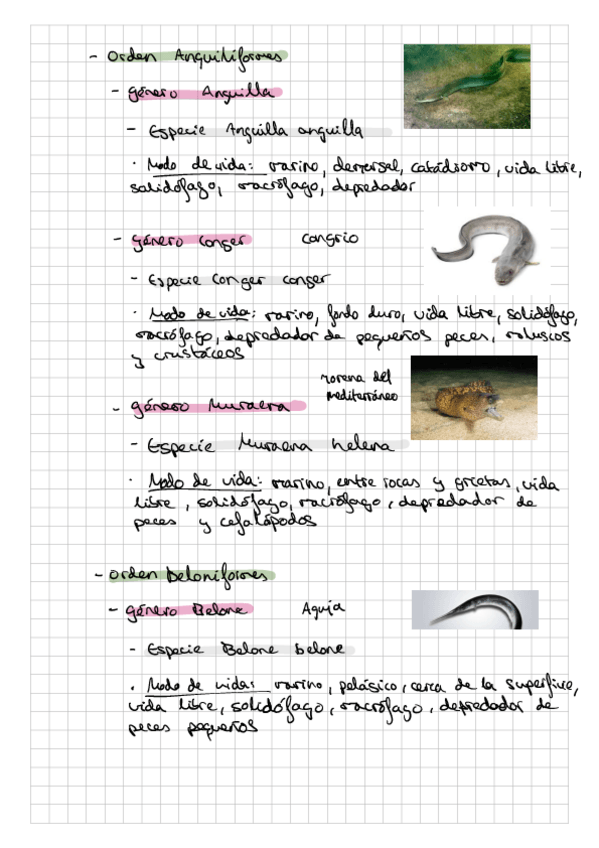 - Orden Anguiliformes
- género Anguilla
- Especie Anguilla anguilla
· Modo de vida: marino, demersal, catádromo, vida libre,
solidófago, macrófago, depredador
- género Conger congrio
- Especie Conger conger
· Modo de vida: marino, fondo duro, vida libre, solidófago,
macrófago, depredador de pequeños peces, moluscos
y crustáceos
morena del
mediterráneo
- género Muraena
- Especie Muraena helena
· Modo de vida: marino, entre rocas y grietas, vida
libre, solidófago, macrófago, depredador de
peces y cefalópodos
- Orden Beloniformes
- género Belone Aguja
- Especie Belone belone
· Modo de vida: marino, pelásico, cerca de la superfive,
vida libre, solidófago, macrófago, depredador de
peces pequeños